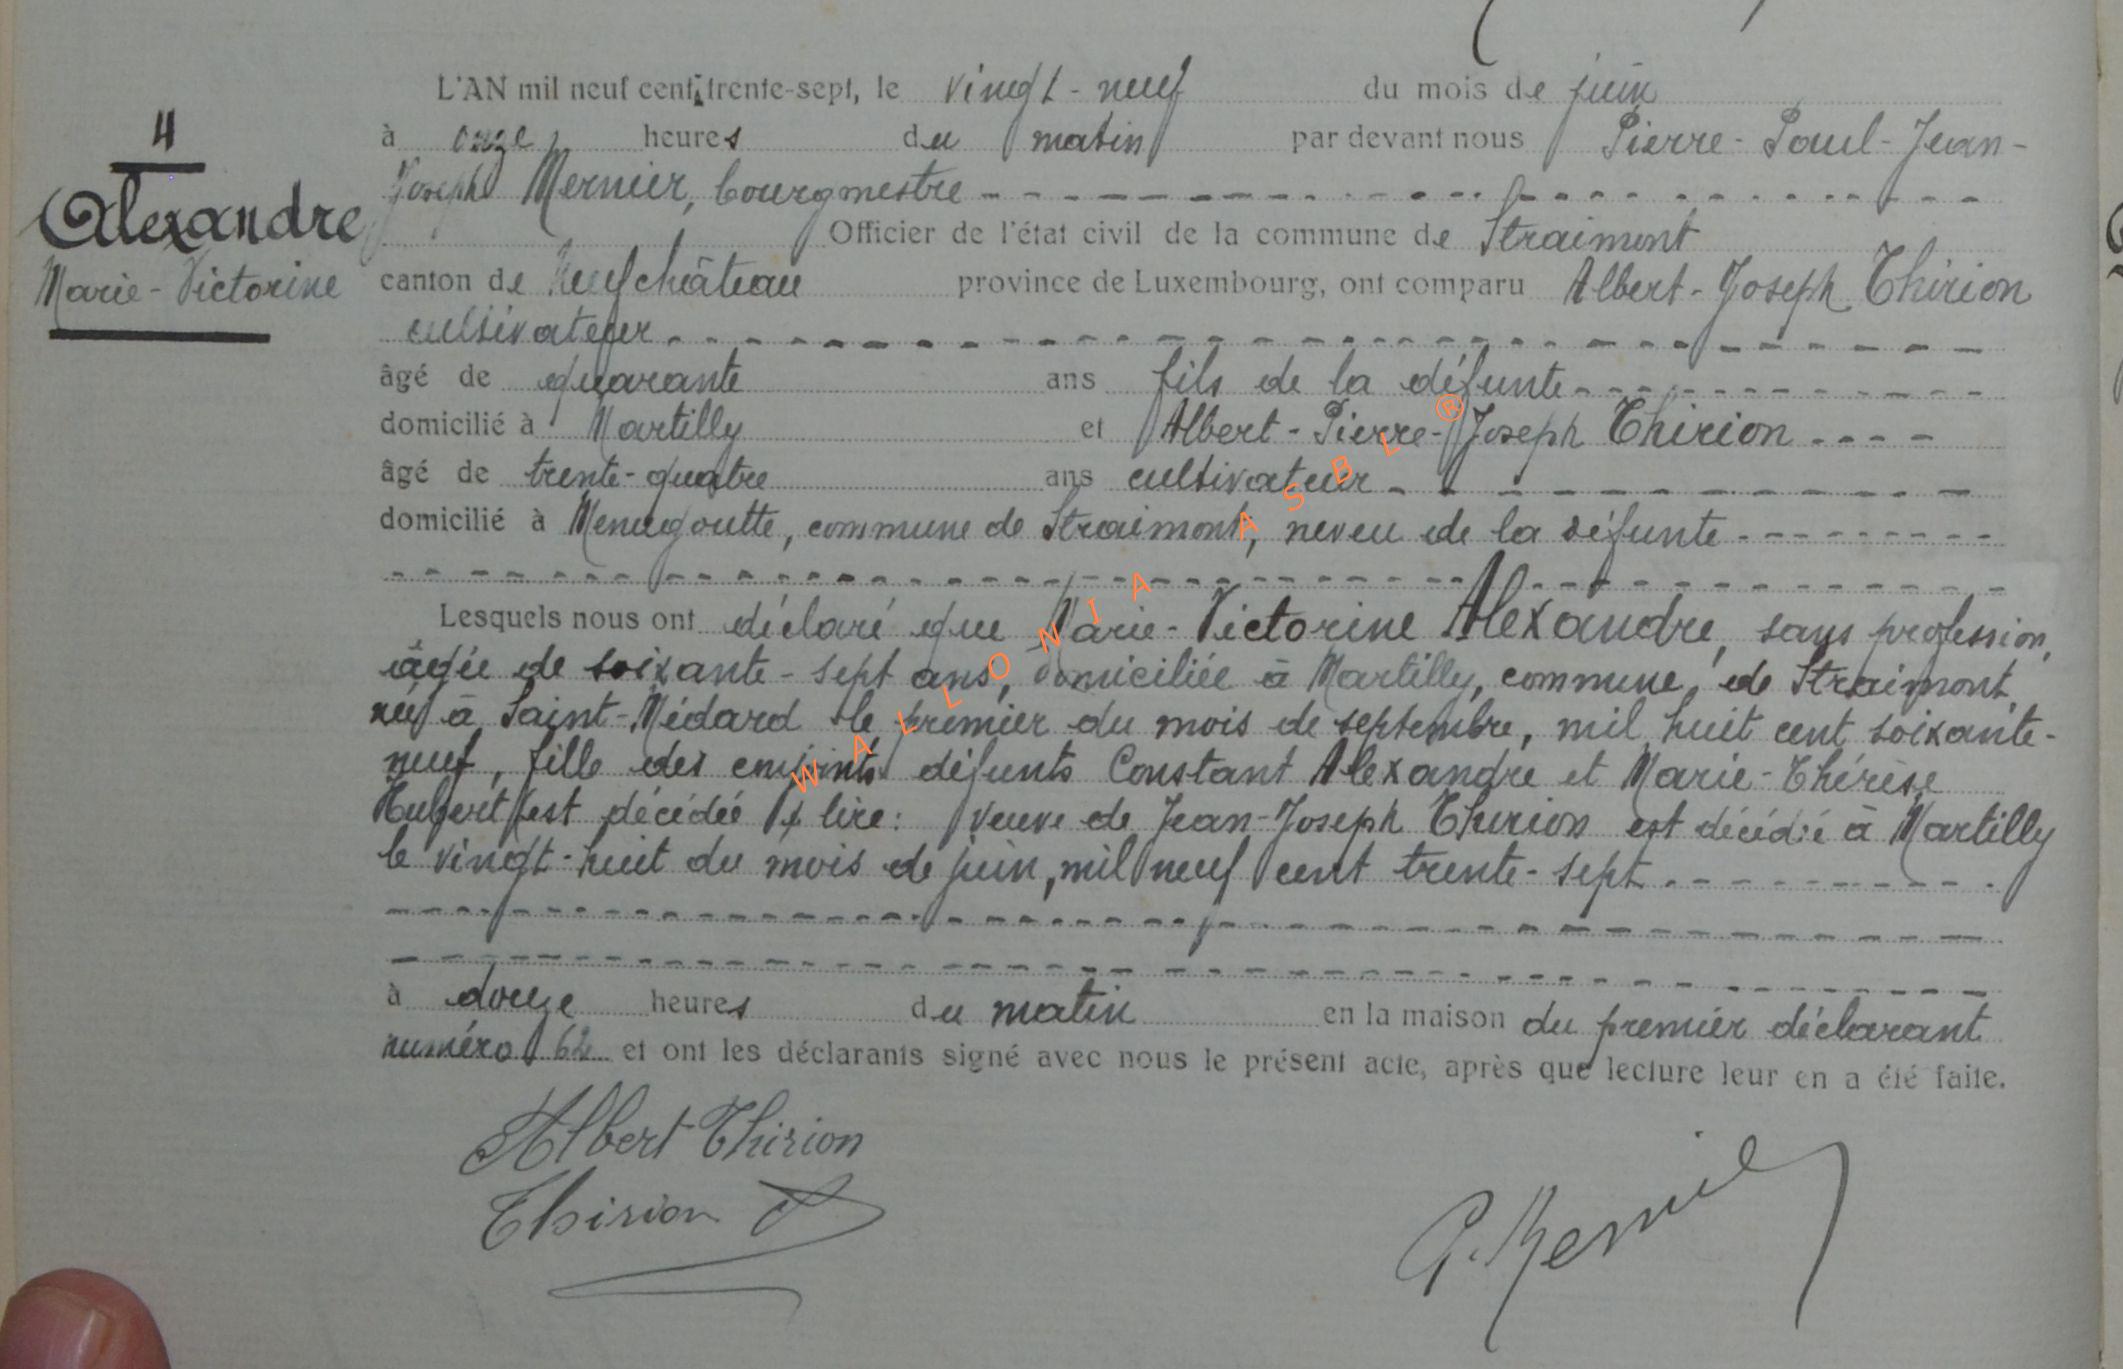 L'AN mil neuf cent trente-sept, le vingt-neuf du mois de juin
4
à onze heures du matin par devant nous Pierre-Paul-Jean-
Joseph Mernier, bourgmestre
Alexandre
Officier de l'état civil de la commune de Straimont
Marie-Victorine
canton de Neufchâteau province de Luxembourg, ont comparu Albert-Joseph Thirion
cultivateur
âgé de quarante ans fils de la défunte
domicilié à Martilly et Albert-Pierre-Joseph Thirion
âgé de trente-quatre ans cultivateur
domicilié à Menugoutte, commune de Straimont, neveu de la défunte
Lesquels nous ont déclaré que Marie-Victorine Alexandre, sans profession,
âgée de soixante-sept ans, domiciliée à Martilly, commune de Straimont,
née à Saint-Médard le premier du mois de septembre, mil huit cent soixante-
neuf, fille des conjoints défunts Constant Alexandre et Marie-Thérèse
Hubert est décédée lire: veuve de Jean-Joseph Thirion est décédée à Martilly
le vingt-huit du mois de juin, mil neuf cent trente-sept
à douze heures du matin en la maison du premier déclarant
numéro 62 et ont les déclarants signé avec nous le présent acte, après que lecture leur en a été faite.
Albert Thirion
Thirion A
P. Mernier
WALLONIA ASBL ®